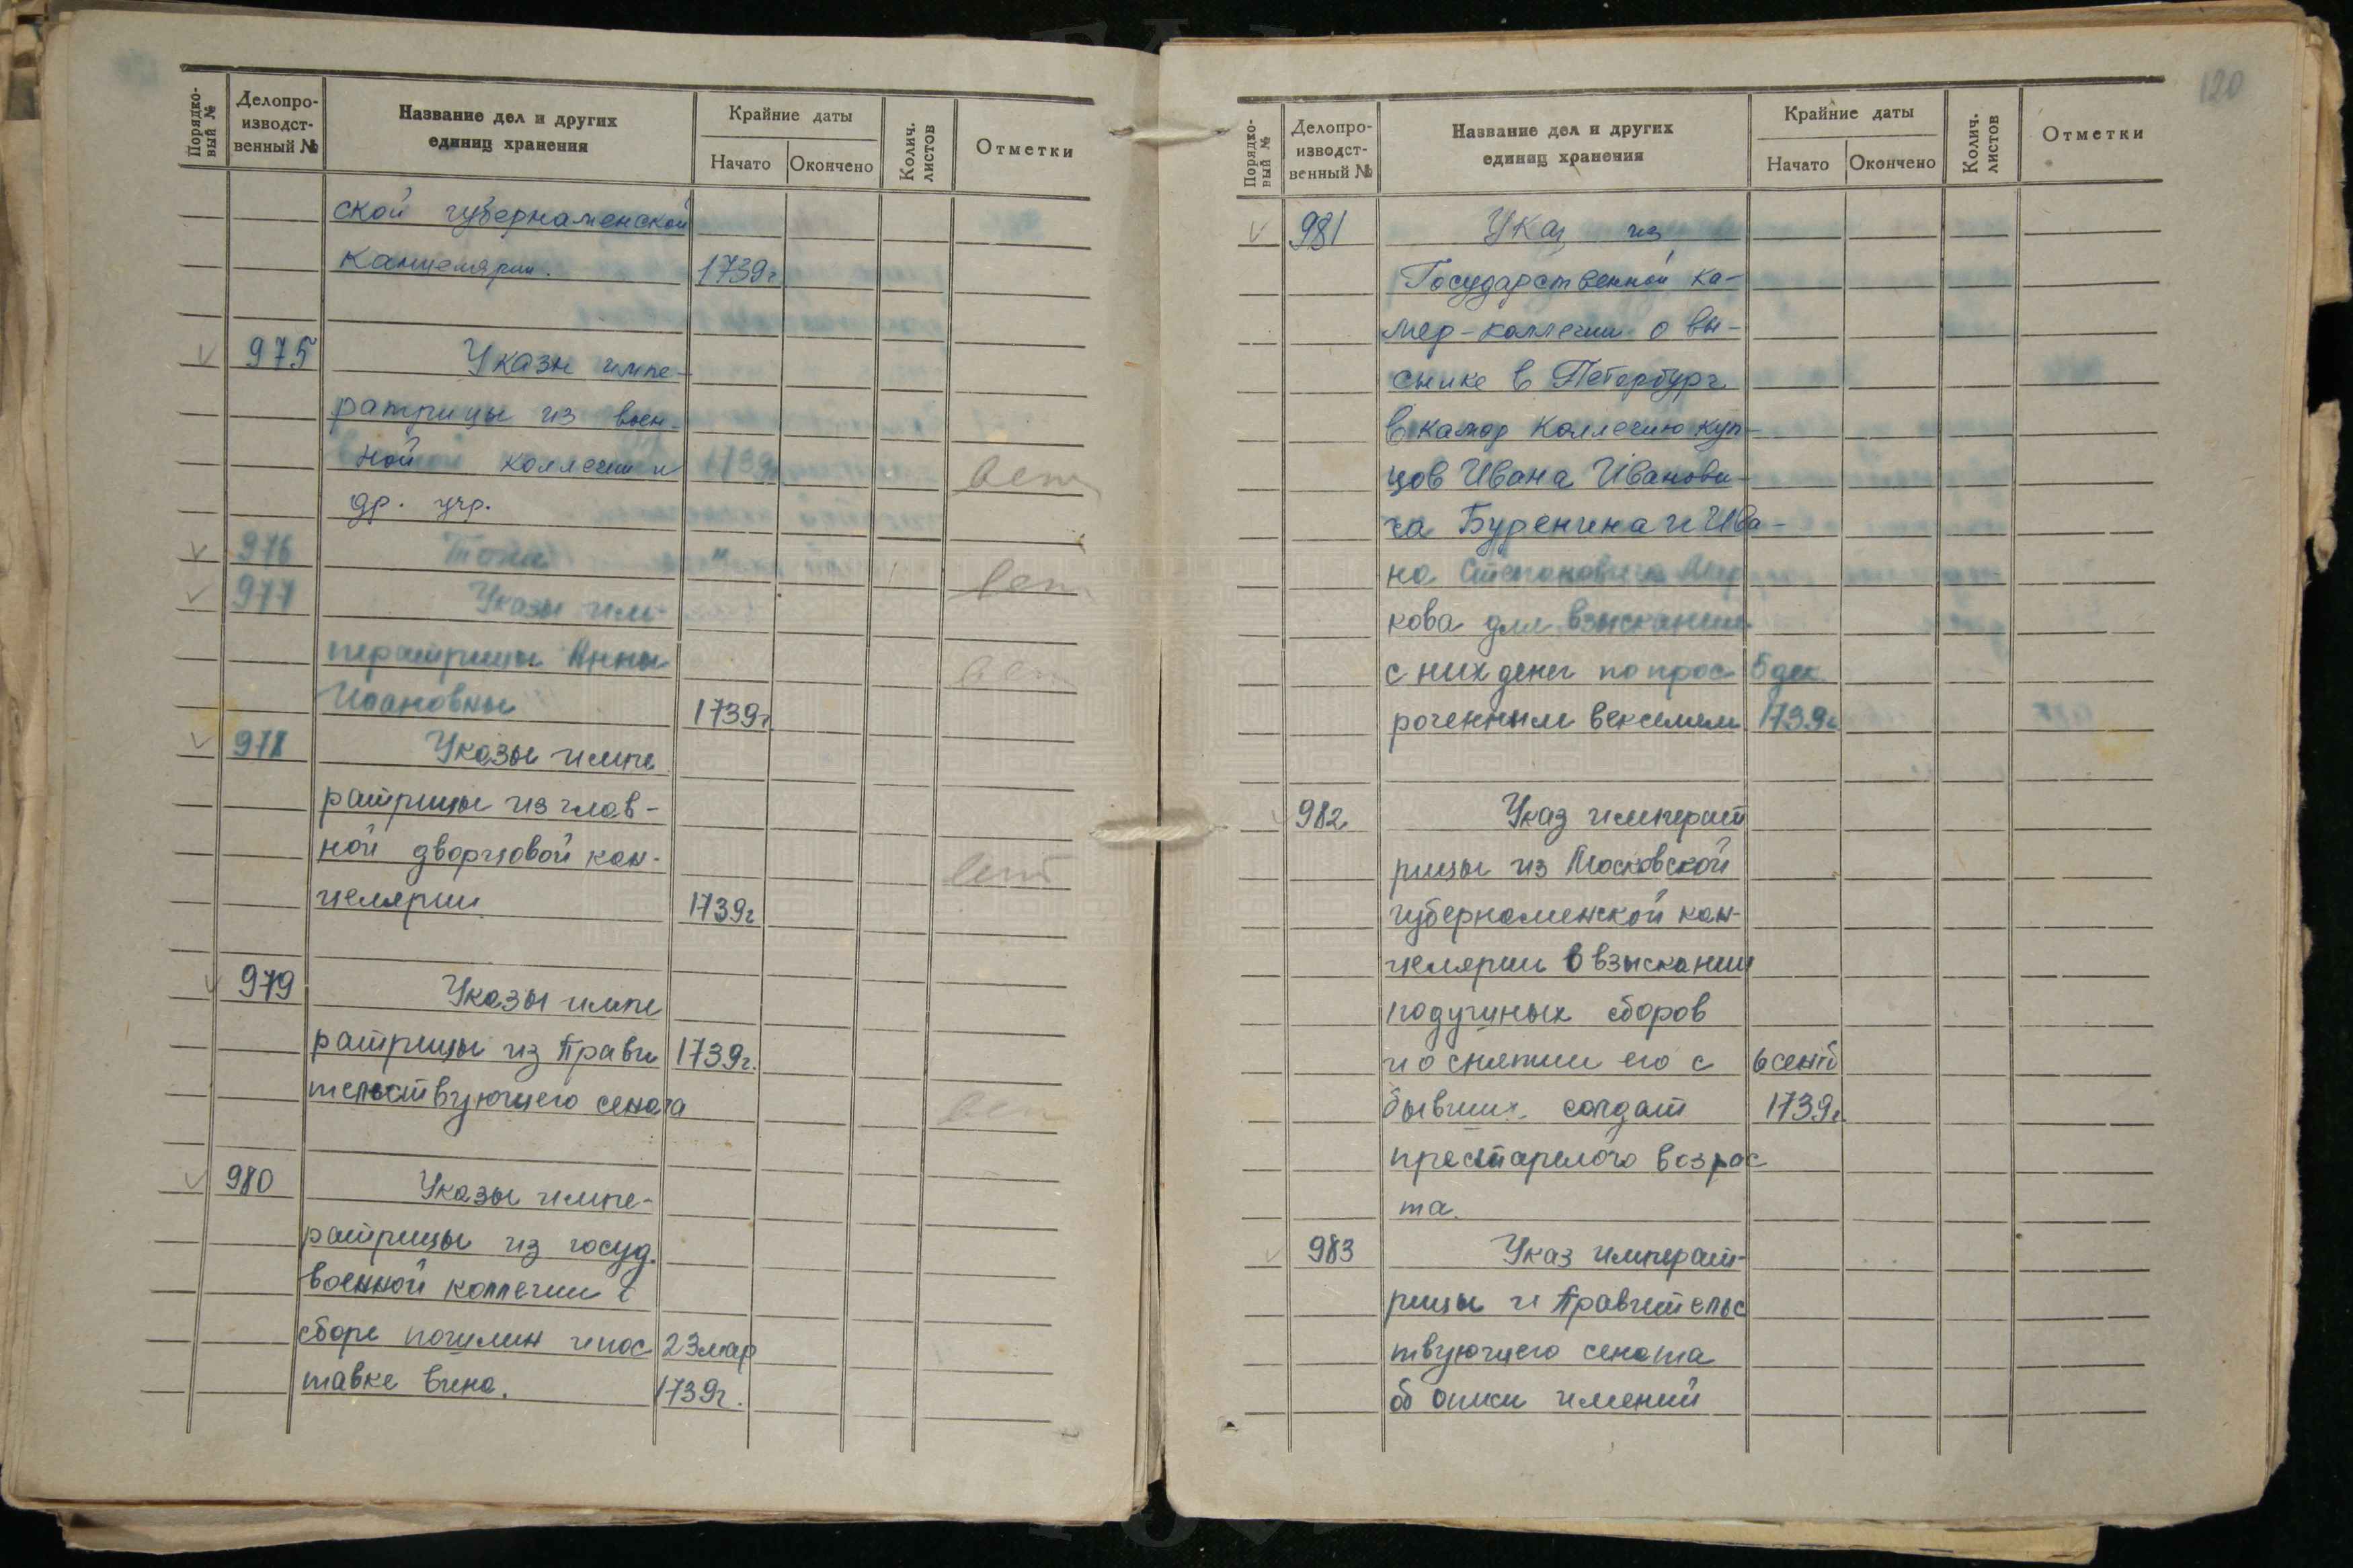 Порядко-
вый №
Делопро-
изводст-
венный №
Название дел и других
единиц хранения
Крайние даты
Начато
Окончено
Колич.
листов
Отметки
ской губернаменской
канцелярии. 1739г
975 Указы импе-
ратрицы из воен-
ной коллегии и 1739г вет
др. учр.
976 Тоже " вет
977 Указы им-
ператрицы Анны вет
Иоановны 1739г
978 Указы импе
ратрицы из глав-
ной дворцовой кан- вет
целярии 1739г
979 Указы импе
ратрицы из Прави 1739г.
тельствующего сената вет
980 Указы импе-
ратрицы из госуд.
военной коллегии о
сборе пошлин и пос 23 мар
тавке вина. 1739г.
120
Порядко-
вый №
Делопро-
изводст-
венный №
Название дел и других
единиц хранения
Крайние даты
Начато
Окончено
Колич.
листов
Отметки
981 Указ из
Государственной ка-
мер-коллегии о вы-
сылке в Петербург
в камор коллегию куп-
цов Ивана Иванови-
ча Буренина и Ива-
на Степановича
кова для взыскания
с них денег по прос 5 дек.
роченным векселям 1739г
982 Указ императ
рицы из Московской
губернаменской кан-
целярии о взыскании
подушных сборов
и о снятии его с 6 сентб
бывших солдат 1739г.
престарелого возрас
та.
983 Указ императ-
рицы и Правительс
твующего сената
об описи имений